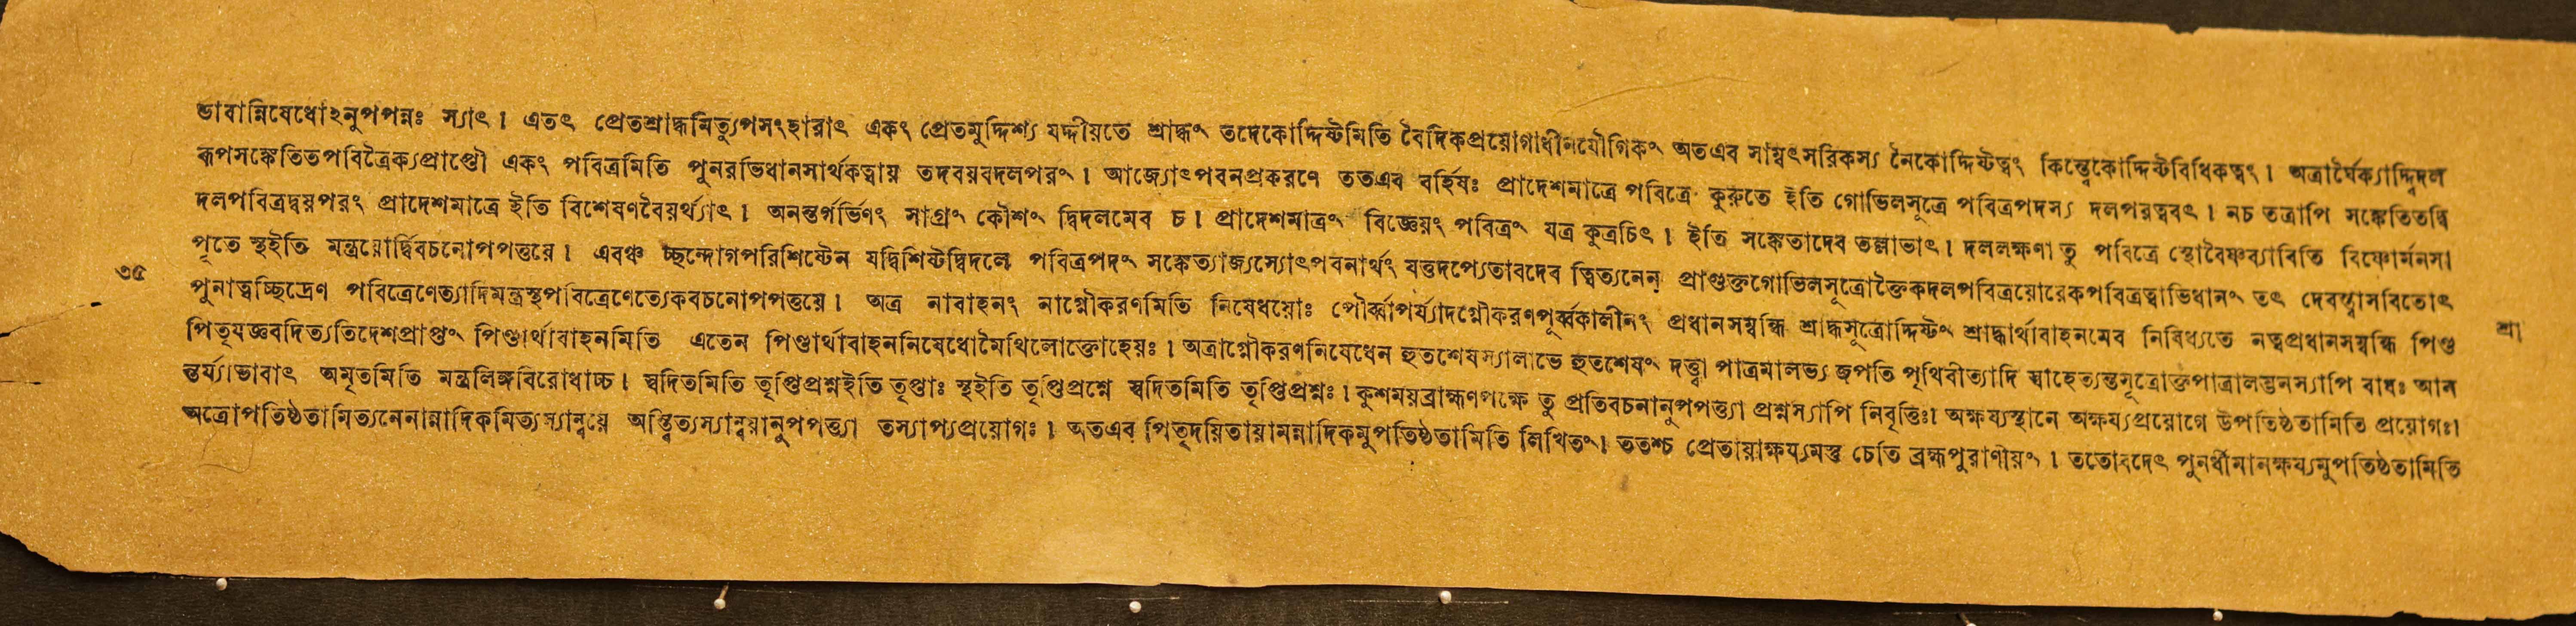 ভাবান্নিষেধোঽনুপপন্নঃ স্যাৎ। এতৎ প্রেতশ্রাদ্ধমিত্যুপসংহারাৎ একং প্রেতমুদ্দিশ্য যদ্দীয়তে শ্রাদ্ধং তদেকোদ্দিষ্টমিতি বৈদিকপ্রয়োগাধীনযৌগিকং অতএব সাম্বৎসরিকস্য নৈকোদ্দিষ্টত্বং কিন্ত্বেকোদ্দিষ্টবিধিকত্বং। অত্রার্ঘৈক্যাদ্দ্বিদল
রূপসঙ্কেতিতপবিত্রৈক্যপ্রাপ্তৌ একং পবিত্রমিতি পুনরভিধানসার্থকত্বায় তদবয়বদলপরং। আজ্যোৎপবনপ্রকরণে ততএব বর্হিষঃ প্রাদেশমাত্রে পবিত্রে কুরুতে ইতি গোভিলসূত্রে পবিত্রপদস্য দলপরত্ববৎ। নচ তত্রাপি সঙ্কেতিতদ্বি
দলপবিত্রদ্বয়পরং প্রাদেশমাত্রে ইতি বিশেষণবৈয়র্থ্যাৎ। অনন্তর্গর্ভিণং সাগ্রং কৌশং দ্বিদলমেব চ। প্রাদেশমাত্রং বিজ্ঞেয়ং পবিত্রং যত্র কুত্রচিৎ। ইতি সঙ্কেতাদেব তল্লাভাৎ। দললক্ষণা তু পবিত্রে স্থোবৈষ্ণব্যাবিতি বিষ্ণোর্মনসা
পূতে স্থইতি মন্ত্রয়োর্দ্বিবচনোপপত্তয়ে। এবঞ্চ চ্ছন্দোগপরিশিষ্টেন যদ্বিশিষ্টদ্বিদলে পবিত্রপদং সঙ্কেত্যাজ্যস্যোৎপবনার্থং যত্তদপ্যেতাবদেব ত্বিত্যনেন প্রাগুক্তগোভিলসূত্রোক্তৈকদলপবিত্রয়োরেকপবিত্রত্বাভিধানং তৎ দেবস্ত্বাসবিতোৎ
৩৫
পুনাত্বচ্ছিদ্রেণ পবিত্রেণেত্যাদিমন্ত্রস্থপবিত্রেণেত্যেকবচনোপপত্তয়ে। অত্র নাবাহনং নাগ্নৌকরণমিতি নিষেধয়োঃ পৌর্ব্বাপর্য্যাদগ্নৌকরণপূর্ব্বকালীনং প্রধানসম্বন্ধি শ্রাদ্ধসূত্রোদ্দিষ্টং শ্রাদ্ধার্থাবাহনমেব নিষিধ্যতে নত্বপ্রধানসম্বন্ধি পিণ্ড
শ্রা
পিতৃযজ্ঞবদিত্যতিদেশপ্রাপ্তং পিণ্ডার্থাবাহনমিতি এতেন পিণ্ডার্থাবাহননিষেধোমৈথিলোক্তোহেয়ঃ। অত্রাগ্নৌকরণনিষেধেন হুতশেষস্যালাভে হুতশেষং দত্ত্বা পাত্রমালভ্য জপতি পৃথিবীত্যাদি স্বাহেত্যন্তসূত্রোক্তপাত্রালম্ভনস্যাপি বাধঃ আন
ন্তর্য্যাভাবাৎ অমৃতমিতি মন্ত্রলিঙ্গবিরোধাচ্চ। স্বদিতমিতি তৃপ্তিপ্রশ্নইতি তৃপ্তাঃ স্থইতি তৃপ্তিপ্রশ্নে স্বদিতমিতি তৃপ্তিপ্রশ্নঃ। কুশময়ব্রাহ্মণপক্ষে তু প্রতিবচনানুপপত্ত্যা প্রশ্নস্যাপি নিবৃত্তিঃ। অক্ষয্যস্থানে অক্ষয্যপ্রয়োগে উপতিষ্ঠতামিতি প্রয়োগঃ।
অত্রোপতিষ্ঠতামিত্যনেনান্নাদিকমিত্যস্যান্বয়ে অস্ত্বিত্যস্যান্বয়ানুপপত্ত্যা তস্যাপ্যপ্রয়োগঃ। অতএব পিতৃদয়িতায়ামন্নাদিকমুপতিষ্ঠতামিতি লিখিতং। ততশ্চ প্রেতায়াক্ষয্যমস্তু চেতি ব্রহ্মপুরাণীয়ং। ততোবদেৎ পুনর্ধীমানক্ষয্যমুপতিষ্ঠতামিতি